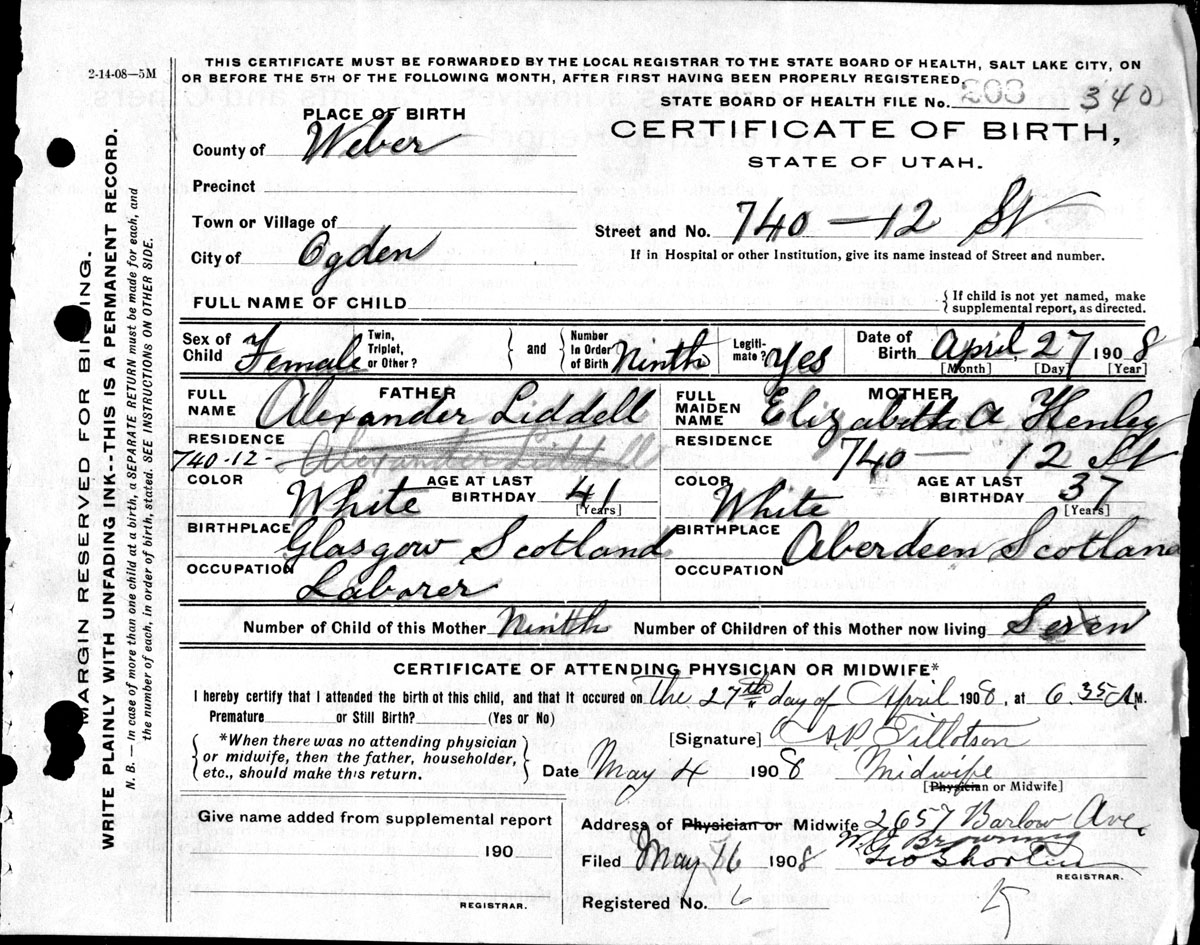 2-14-08—5M
THIS CERTIFICATE MUST BE FORWARDED BY THE LOCAL REGISTRAR TO THE STATE BOARD OF HEALTH, SALT LAKE CITY, ON
OR BEFORE THE 5TH OF THE FOLLOWING MONTH, AFTER FIRST HAVING BEEN PROPERLY REGISTERED.
STATE BOARD OF HEALTH FILE No. 203 340
PLACE OF BIRTH
CERTIFICATE OF BIRTH,
STATE OF UTAH.
County of Weber
Precinct
Town or Village of
Street and No. 740 — 12 St
City of Ogden
If in Hospital or other Institution, give its name instead of Street and number.
FULL NAME OF CHILD
{If child is not yet named, make
supplemental report, as directed.
Sex of Child Female Twin, Triplet, or Other? } and { Number In Order of Birth Ninth Legiti-mate? Yes Date of Birth April 27 1908
[Month] [Day] [Year]
FATHER MOTHER
FULL NAME Alexander Liddell FULL MAIDEN NAME Elizabeth A Henley
RESIDENCE 740-12- Alexander Liddell RESIDENCE 740 — 12 St
COLOR White AGE AT LAST BIRTHDAY 41 [Years] COLOR White AGE AT LAST BIRTHDAY 37 [Years]
BIRTHPLACE Glasgow Scotland BIRTHPLACE Aberdeen Scotland
OCCUPATION Laborer OCCUPATION
Number of Child of this Mother Ninth Number of Children of this Mother now living Seven
CERTIFICATE OF ATTENDING PHYSICIAN OR MIDWIFE*
I hereby certify that I attended the birth of this child, and that it occured on the 27th day of April 1908, at 6.35 A M.
Premature or Still Birth? (Yes or No)
{*When there was no attending physician
or midwife, then the father, householder,
etc., should make this return.}
[Signature] A.P. Tillotson
Date May 4 1908 Midwife
[Physician or Midwife]
Give name added from supplemental report
190
REGISTRAR.
Address of Physician or Midwife 2657 Barlow Ave,
W. Browning
Filed May 16 1908 Geo Shorten
REGISTRAR.
Registered No. 6
25
MARGIN RESERVED FOR BINDING.
WRITE PLAINLY WITH UNFADING INK--THIS IS A PERMANENT RECORD.
N. B. — In case of more than one child at a birth, a SEPARATE RETURN must be made for each, and
the number of each, in order of birth, stated. SEE INSTRUCTIONS ON OTHER SIDE.